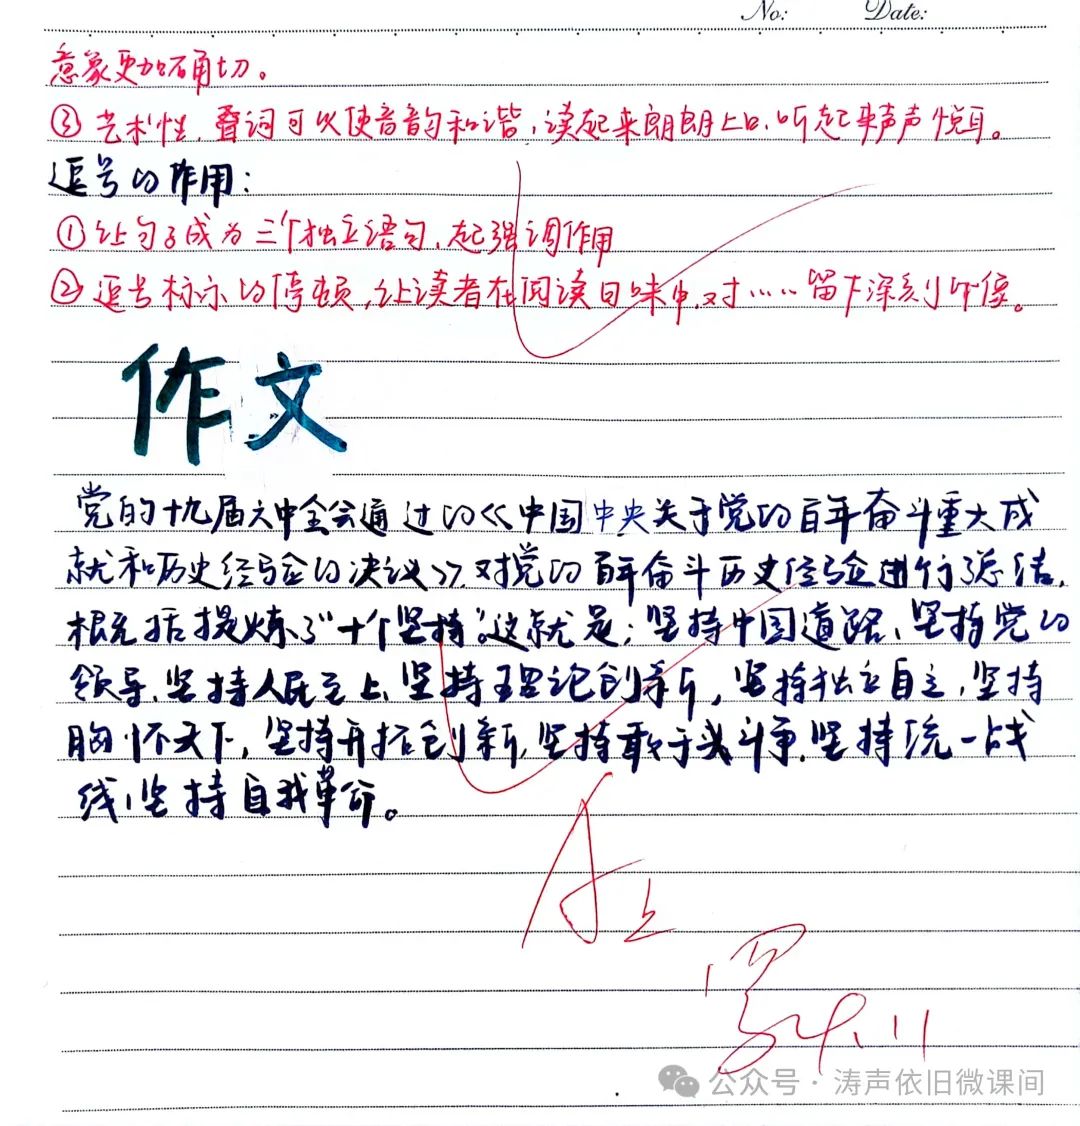 No: Date:
意象更加确切。
③艺术性,叠词可以使音韵和谐,读起来朗朗上口,听起来声声悦耳。
逗号的作用:
①让句子成为三个独立语句,起强调作用
②逗号标示的停顿,让读者在阅读回味中,对……留下深刻印像。
作文
党的十九届六中全会通过的《中国中央关于党的百年奋斗重大成
就和历史经验的决议》,对党的百年奋斗历史经验进行了总结,
概括提炼了“十个坚持”。这就是:坚持中国道路、坚持党的
领导、坚持人民至上、坚持理论创新,坚持独立自主,坚持
胸怀天下,坚持开拓创新,坚持敢于斗争,坚持统一战
线,坚持自我革命。
A上
9.11
公众号·涛声依旧微课间